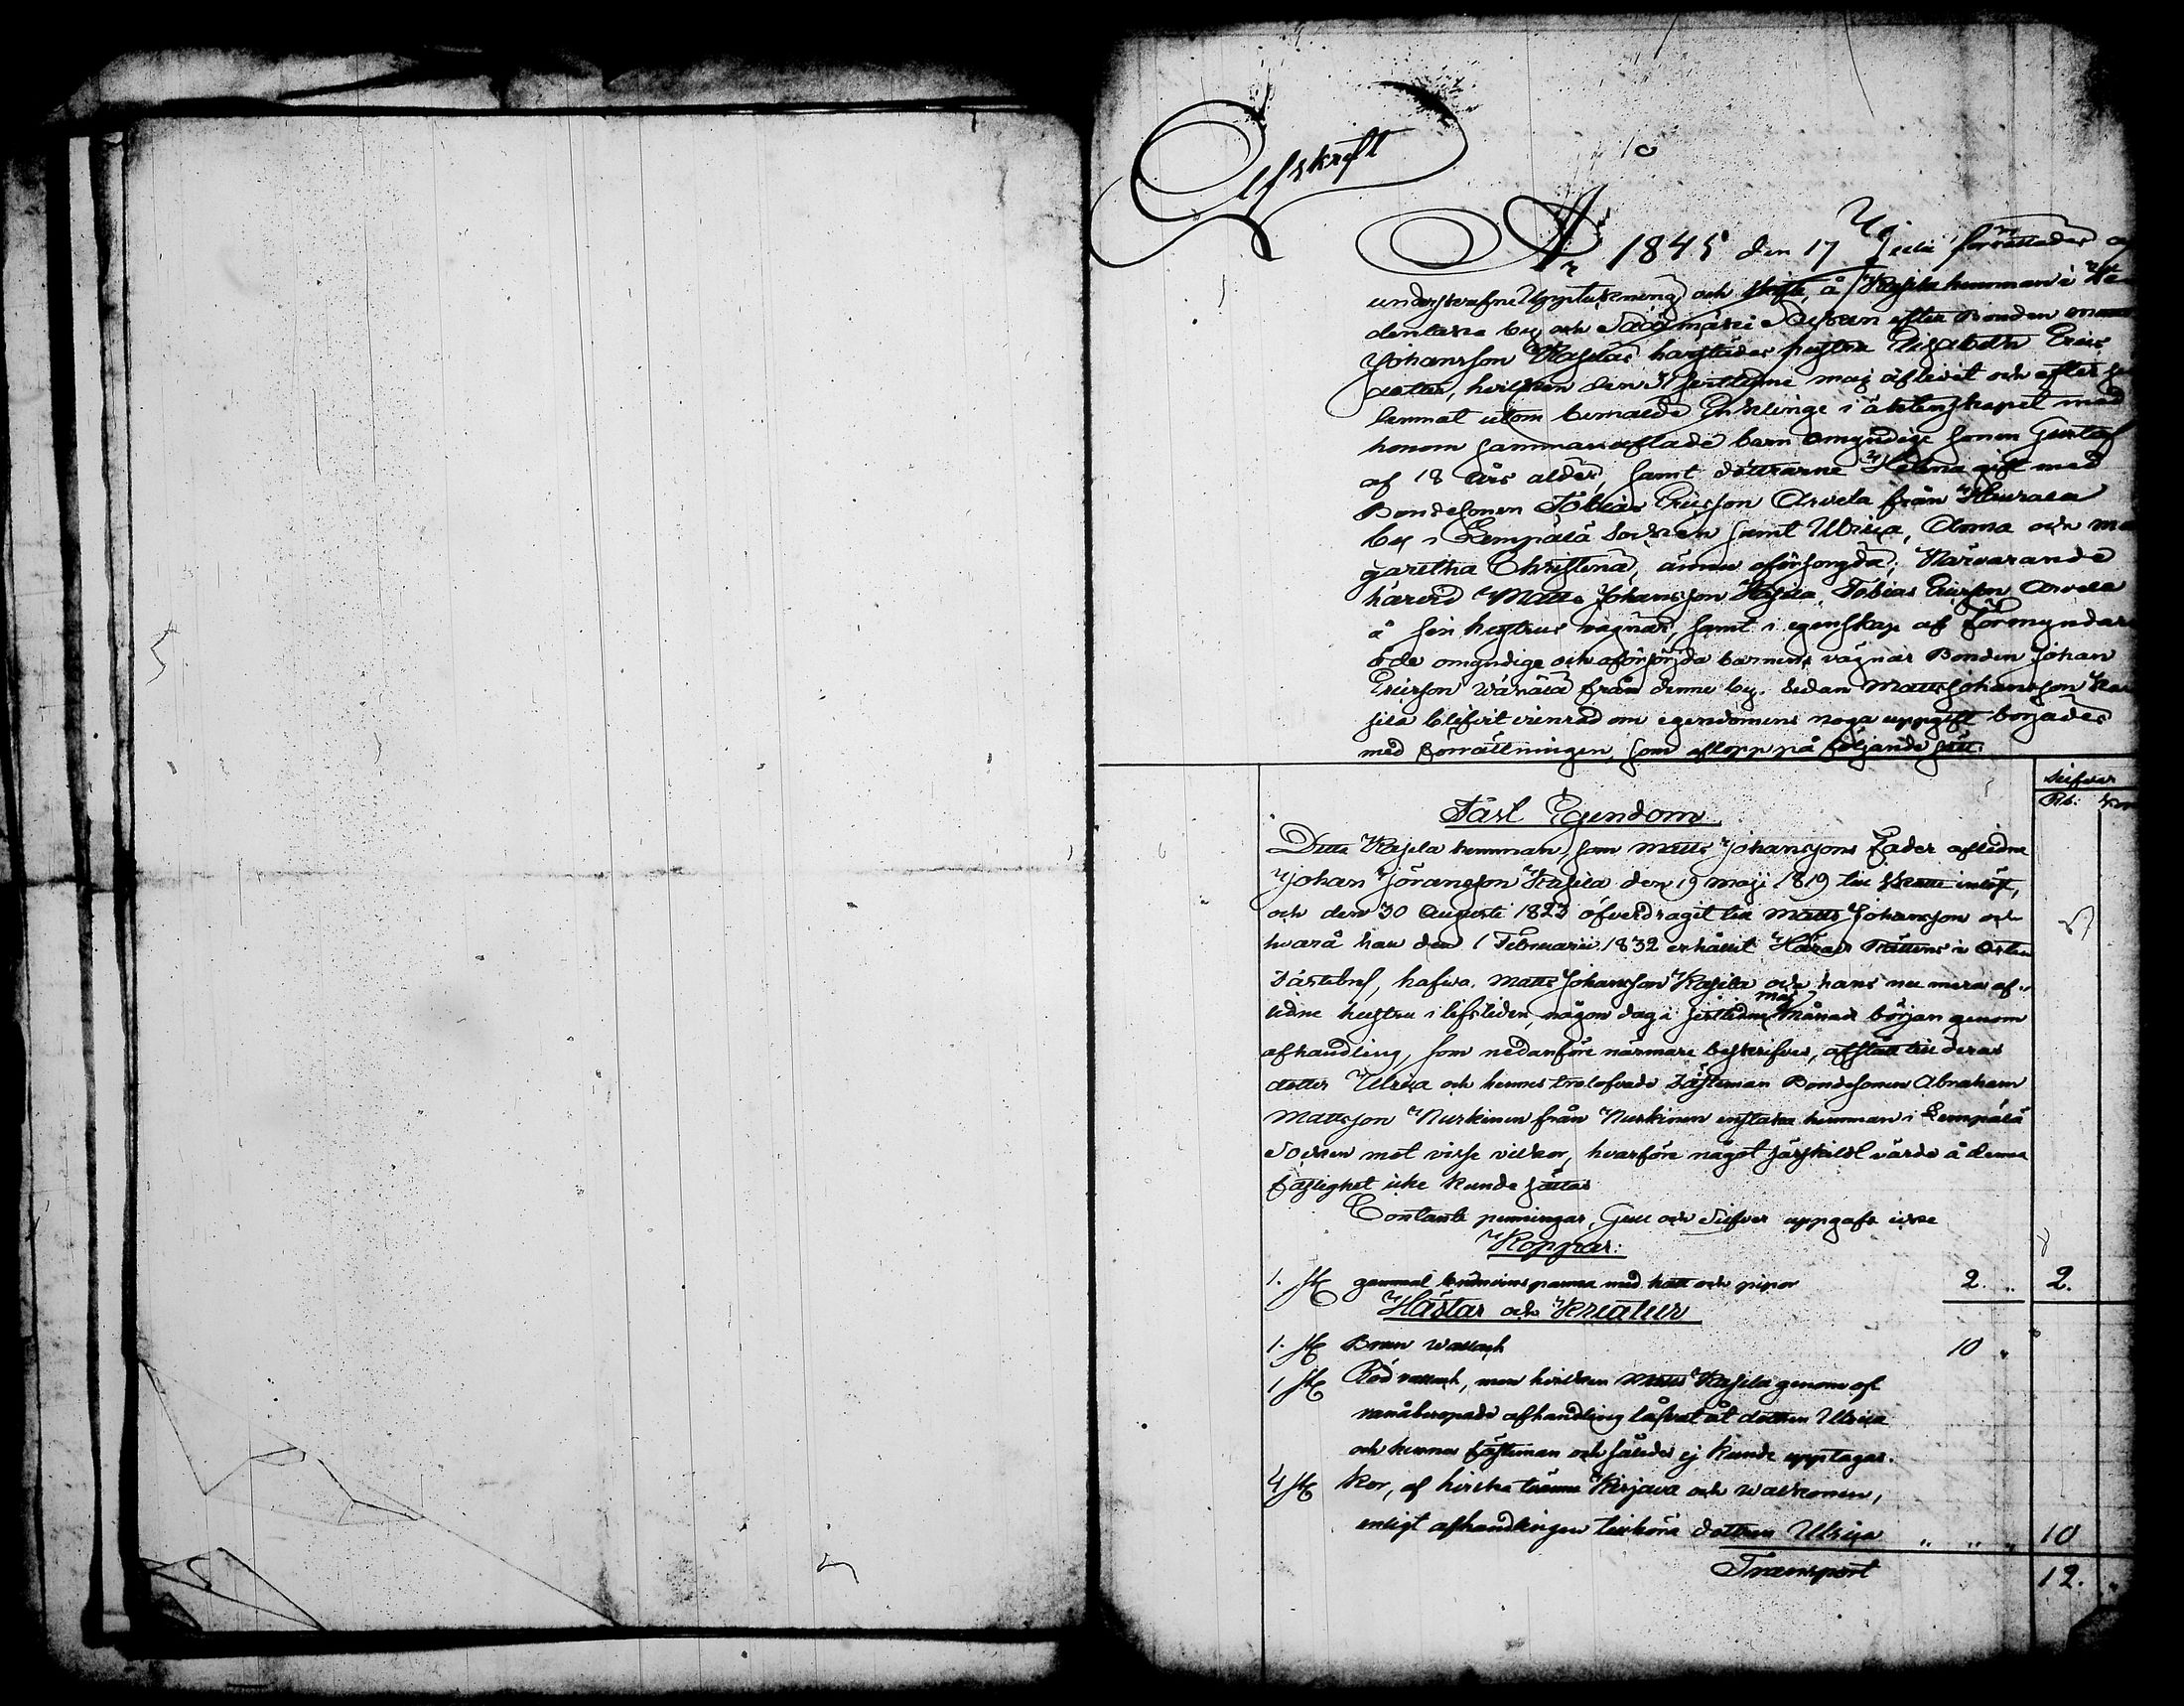 Afskrift
10
År 1845 den 17 Julii förrättades af
underskrefne Uppteckning och skifte, å Kasila hemman i
dentaka by och Sääxmäki Socken efter Bonden Matts
Johansson Kasilas härstädes hustru Elisabetha Erics
dotter, hvilken den sistledne maj aflidit och efter sig
lemnat utom bemälde Enkling i äktenskapet med
honom sammanaflade barn omyndige sonen Gustaf
af 18 års ålder, samt döttrarne Helena gift med
Bondesonen Tobias Ericsson Arvela från Kurala
by i Lempälä Socken samt Ulrica, Anna och Mar
garetha Christina, ännu oförsörgda; Närvarande
härvid Matts Johansson Kasila, Tobias Ericsson Arvela
å sin hustrus vägnar, samt i egenskap af Förmyndare
å de omyndige och oförsörjda barnens vägnar Bonden Johan
Ericsson Wänälä från denne by. Sedan Matts Johansson Ka
sila blifvit erinrad om egendomens noga uppgift börjades
med Förrättningen, som aflopp på följande sätt:
Silfver
Rb: Kop
Fast Egendom
Detta Kasila hemman, som Matts Johanssons Fader aflidne
Johan Jöransson Kasila den 19 Maji 1819 till skatte inlöst,
och den 30 Augusti 1823 öfverdragit till Matts Johansson och
hvarå han den 1 Februarii 1832 erhållit Härads Rättens
Fastebref, hafva Matts Johansson Kasila och hans nu mera af-
lidne hustru i lifstiden, någon dag i sistledne Maj Månads början genom
afhandling, som nedanföre närmare beskrifves, afstått till deras
dotter Ulrica och hennes trolofvade Fästeman Bondesonen Abraham
Mattsson Nurkinen från Nurkinen enstaka hemman i Lempälä
Socken mot visse vilkor, hvarföre något särskildt värde å denna
fastighet icke kunde sättas
Contante penningar, Gull och Silfver uppgafs icke
Koppar:
1. st gammal brännvins panna med hatt och pipor 2. „ 2.
Hästar och Kreatur
1. st Brun Wallack 10 „
1 st Röd vallack, men hvilken Matts Kasila genom of
vanåberopade afhandling låfvat åt dottren Ulrica
och hennes fästeman och således ej kunde upptagas.
4 st Kor, af hvilka tvänne Kirjava och Walkonen,
enligt afhandlingen tillhöra dottren Ulrica „ „ „ 10
Transport 12. „